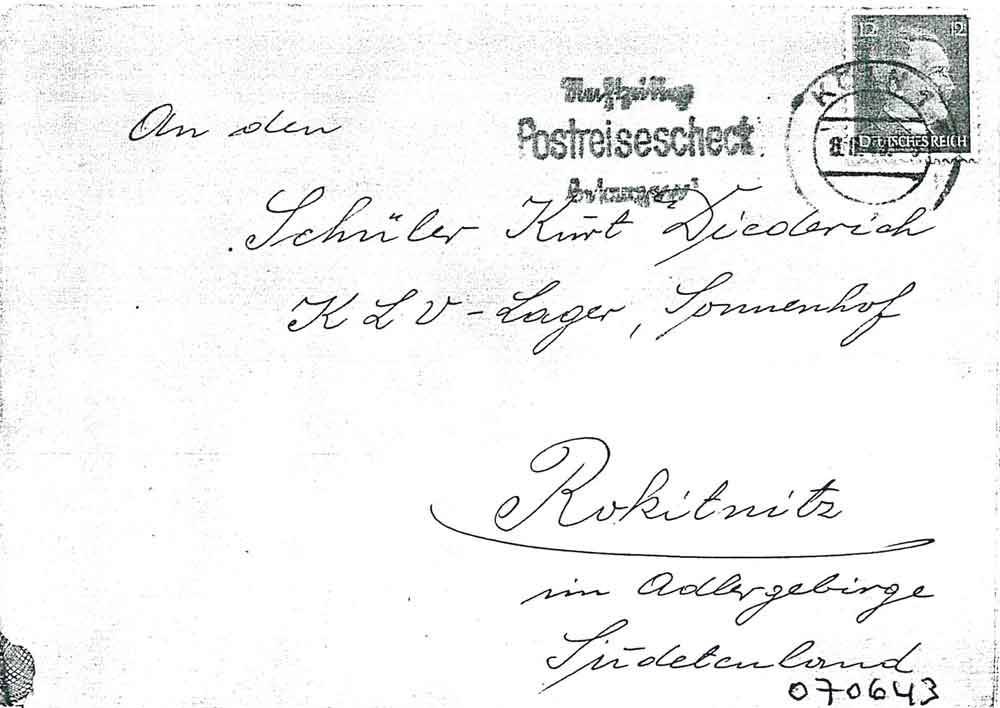 12 12
KÖLN 1
Postreisescheck
DEUTSCHES REICH
An den
Schüler Kurt Diederich
KLV-Lager, Sonnenhof
Rokitnitz
im Adlergebirge
Sudetenland
070643